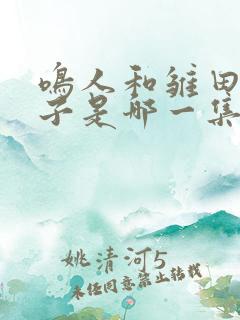 鸣人和雏田
子是哪一集
姚清河5
未经同意禁止转载